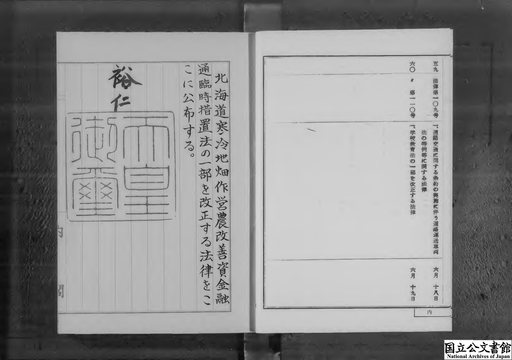 五九 法律第一〇九号
「道路交通に関する条約の実施に伴う道路運送車両
法の特例等に関する法律
六月 十八日
六〇 〃 第一一〇号
「学校教育法の一部を改正する法律
六月 十九日
六
北海道寒冷地畑作営農改善資金融
通臨時措置法の一部を改正する法律をこ
こに公布する。
裕仁
天皇
御璽
国立公文書館
National Archives of Japan